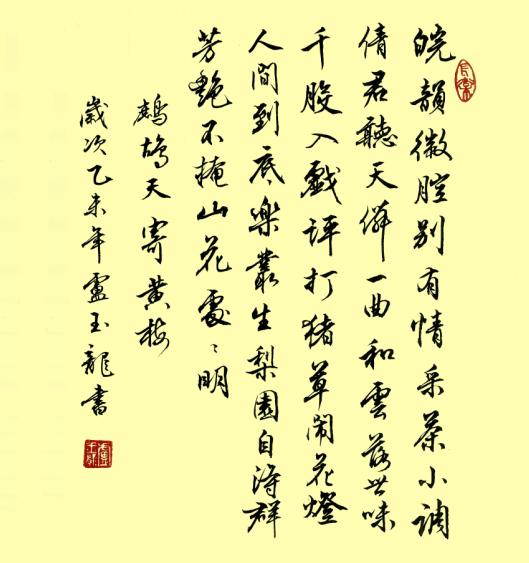 皖韻徽腔别有情采茶小調
倩君聽天僻一曲和雲落世味
千般入戲評打猪草闹花燈
人間到底樂叢生梨園自得群
芳艷不掩山花處〻明
鹧鸪天寄黄梅
歲次乙未年盧玉龍書